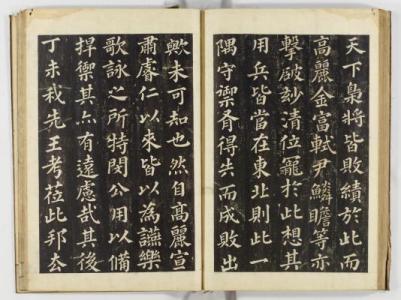 天下梟將皆敗績於此而
高麗金富軾尹鱗瞻等亦
擊破玅清位寵於此想其
用兵皆當在東北則此一
隅守禦胥得失而成敗出
歟未可知也然自高麗宣
肅睿仁以來皆以為讌樂
歌詠之所特閔公用以備
捍禦其亦有遠慮哉其後
丁未我先王考莅此邦去